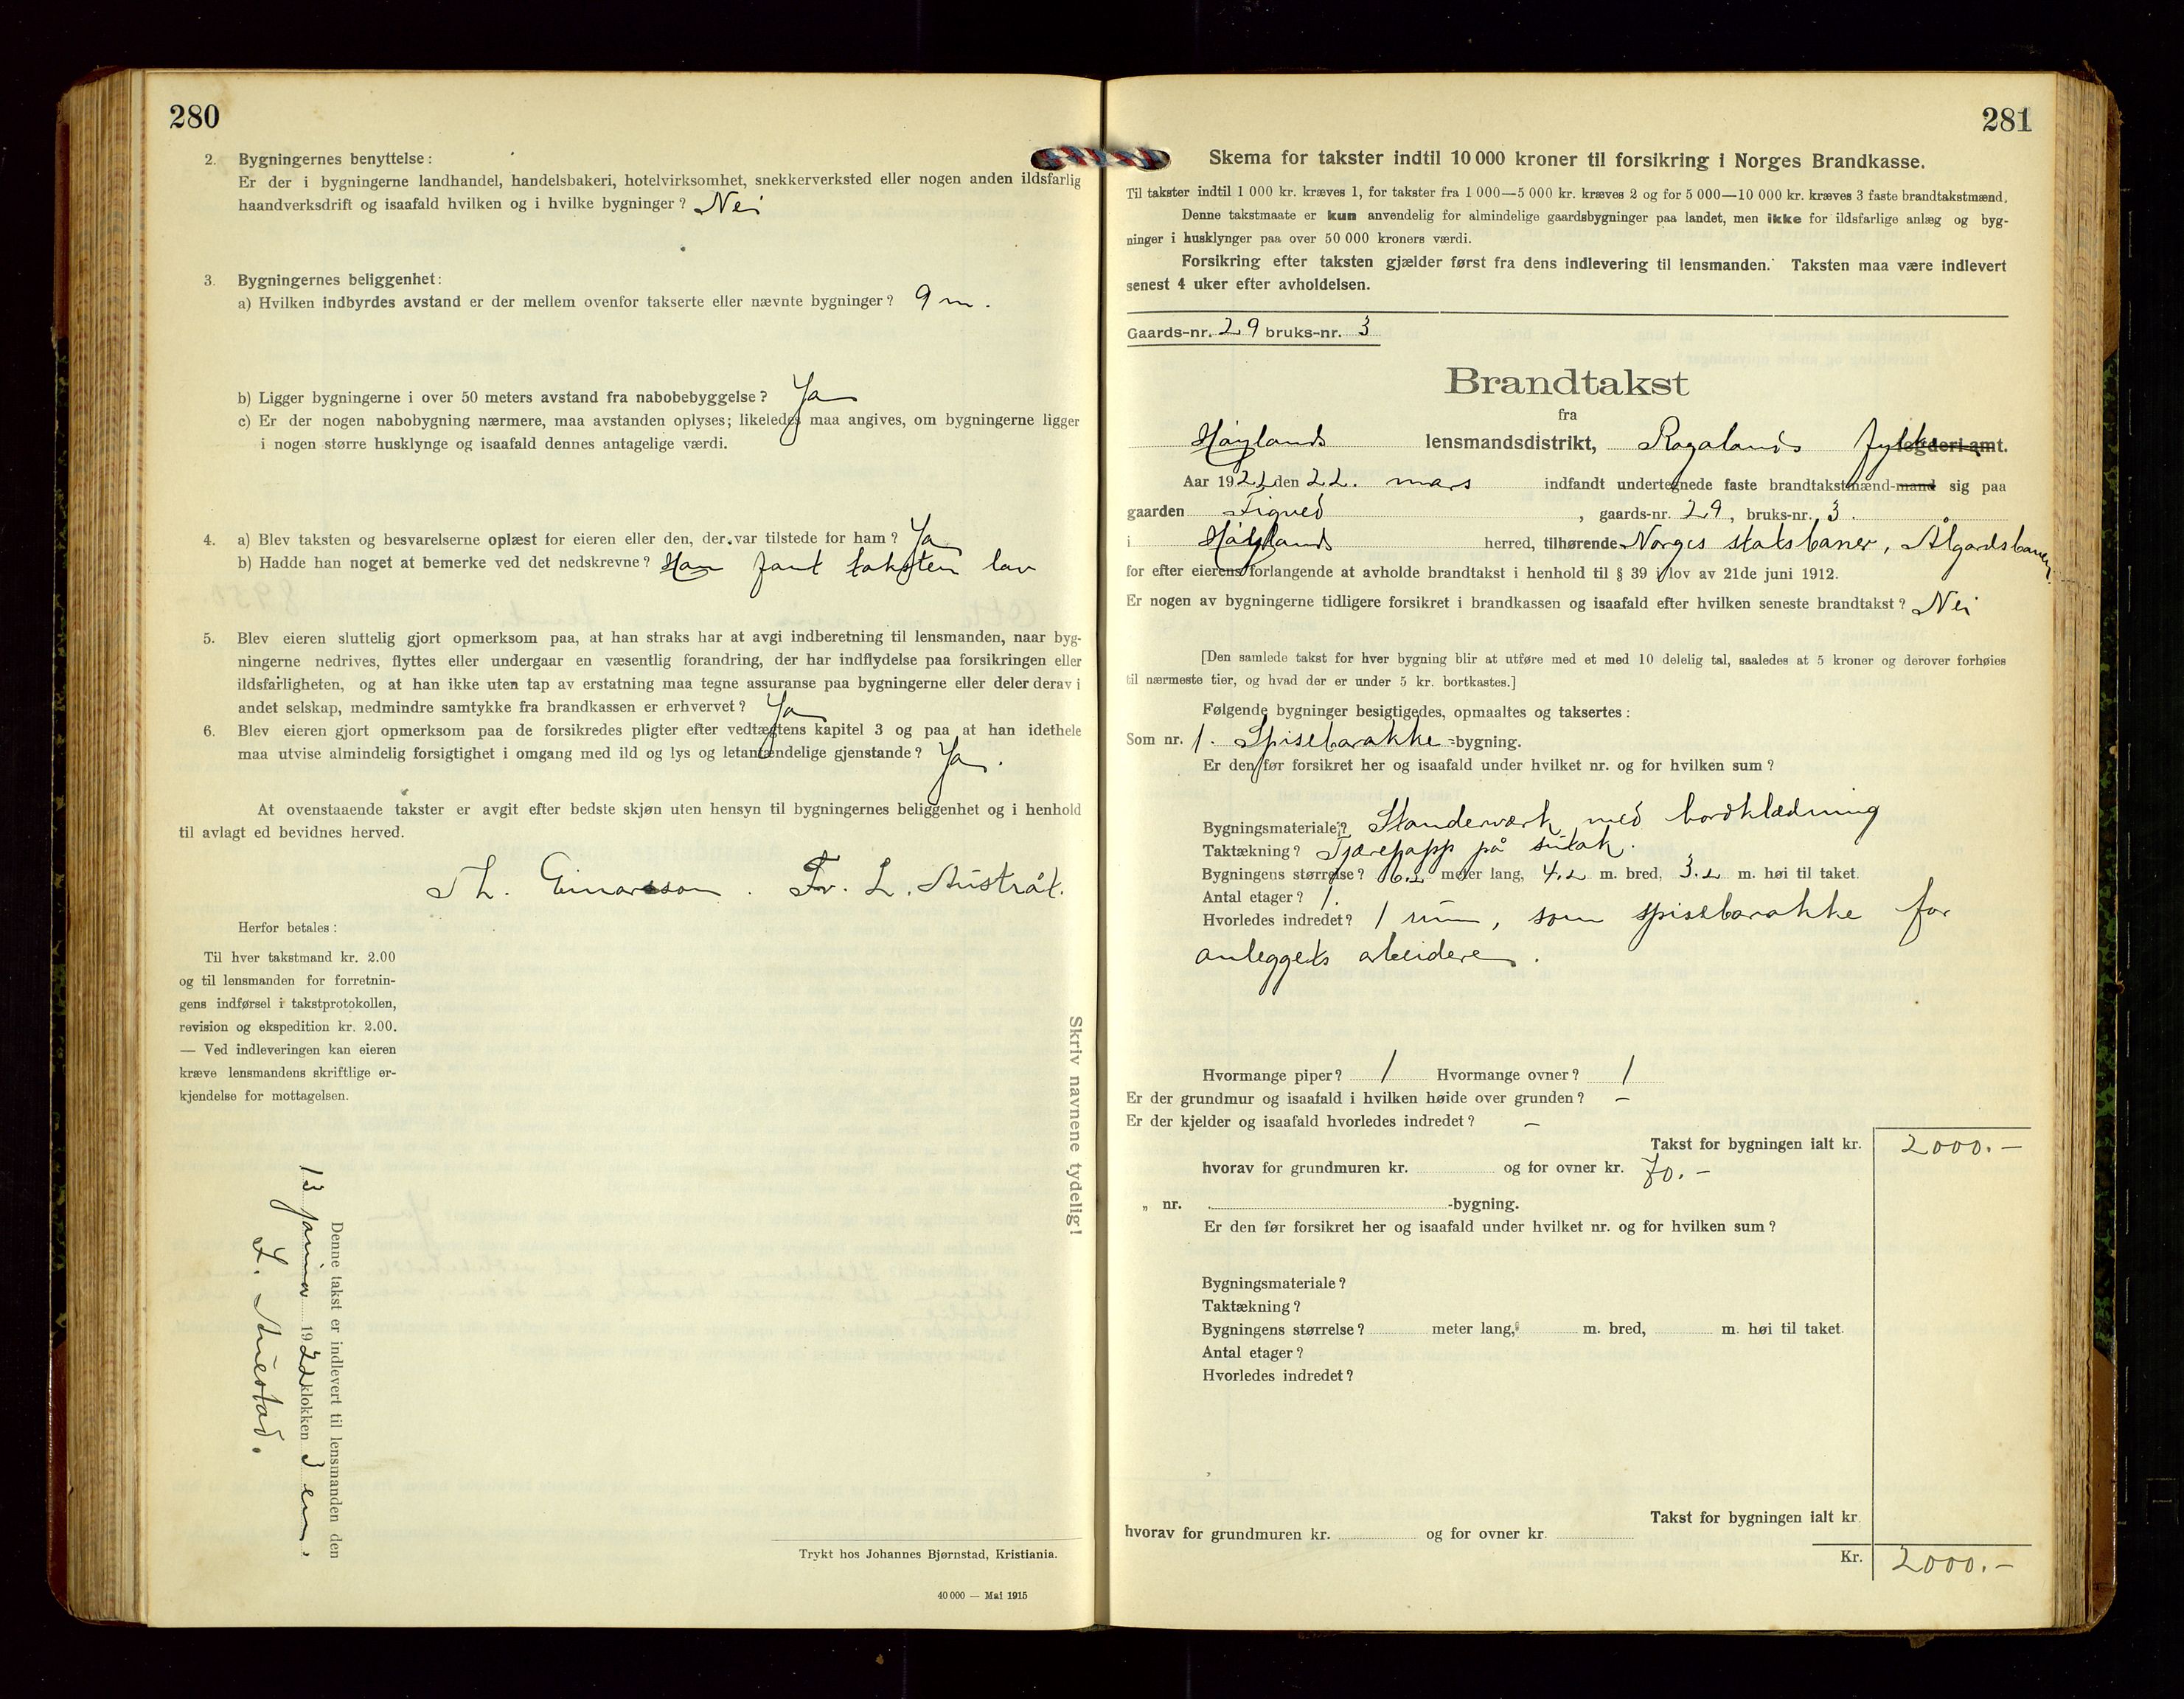 280
2. Bygningernes benyttelse:
Er der i bygningerne landhandel, handelsbakeri, hotelvirksomhet, snekkerverksted eller nogen anden ildsfarlig
haandverksdrift og isaafald hvilken og i hvilke bygninger? Nei
3. Bygningernes beliggenhet:
a) Hvilken indbyrdes avstand er der mellem ovenfor takserte eller nævnte bygninger? 9 m.
b) Ligger bygningerne i over 50 meters avstand fra nabobebyggelse? Ja
c) Er der nogen nabobygning nærmere, maa avstanden oplyses; likeledes maa angives, om bygningerne ligger
i nogen større husklynge og isaafald dennes antagelige værdi.
4. a) Blev taksten og besvarelserne oplæst for eieren eller den, der var tilstede for ham? Ja
b) Hadde han noget at bemerke ved det nedskrevne? Han fant taksten lav
5. Blev eieren sluttelig gjort opmerksom paa, at han straks har at avgi indberetning til lensmanden, naar byg-
ningerne nedrives, flyttes eller undergaar en væsentlig forandring, der har indflydelse paa forsikringen eller
ildsfarligheten, og at han ikke uten tap av erstatning maa tegne assuranse paa bygningerne eller deler derav i
andet selskap, medmindre samtykke fra brandkassen er erhvervet? Ja
6. Blev eieren gjort opmerksom paa de forsikredes pligter efter vedtægtens kapitel 3 og paa at han idethele
maa utvise almindelig forsigtighet i omgang med ild og lys og letantændelige gjenstande? Ja.
At ovenstaaende takster er avgit efter bedste skjøn uten hensyn til bygningernes beliggenhet og i henhold
til avlagt ed bevidnes herved.
Th. Einarsson. Fr. L. Austråt.
Herfor betales:
Til hver takstmand kr. 2.00
og til lensmanden for forretnin-
gens indførsel i takstprotokollen,
revision og ekspedition kr. 2.00.
— Ved indleveringen kan eieren
kræve lensmandens skriftlige er-
kjendelse for mottagelsen.
Skriv navnene tydelig!
Denne takst er indlevert til lensmanden den
13 januar 1922 klokken 3 em.
Trykt hos Johannes Bjørnstad, Kristiania.
40 000 — Mai 1915
281
Skema for takster indtil 10 000 kroner til forsikring i Norges Brandkasse.
Til takster indtil 1 000 kr. kræves 1, for takster fra 1 000—5 000 kr. kræves 2 og for 5 000—10 000 kr. kræves 3 faste brandtakstmænd.
Denne takstmaate er kun anvendelig for almindelige gaardsbygninger paa landet, men ikke for ildsfarlige anlæg og byg-
ninger i husklynger paa over 50 000 kroners værdi.
Forsikring efter taksten gjælder først fra dens indlevering til lensmanden. Taksten maa være indlevert
senest 4 uker efter avholdelsen.
Gaards-nr. 29 bruks-nr. 3
Brandtakst
fra
Høylands lensmandsdistrikt, Rogalands fylke
Aar 1922 den 22. mars indfandt undertegnede faste brandtakstmænd-mand sig paa
gaarden Figved, gaards-nr. 29, bruks-nr. 3.
i Høylands herred, tilhørende Norges statsbaner, Ålgårdsbanen,
for efter eierens forlangende at avholde brandtakst i henhold til § 39 i lov av 21de juni 1912.
Er nogen av bygningerne tidligere forsikret i brandkassen og isaafald efter hvilken seneste brandtakst? Nei
[Den samlede takst for hver bygning blir at utføre med et med 10 delelig tal, saaledes at 5 kroner og derover forhøies
til nærmeste tier, og hvad der er under 5 kr. bortkastes.]
Følgende bygninger besigtigedes, opmaaltes og taksertes:
Som nr. 1. Spisebarakke-bygning.
Er den før forsikret her og isaafald under hvilket nr. og for hvilken sum?
Bygningsmateriale? Standerværk med bordklædning
Taktækning? Tjærepapp på sutak.
Bygningens størrelse? 6.2 meter lang, 4.2 m. bred, 3.2 m. høi til taket.
Antal etager? 1.
Hvorledes indredet? 1 rum, som spisebarakke for
anleggets arbeidere.
Hvormange piper? 1 Hvormange ovner? 1
Er der grundmur og isaafald i hvilken høide over grunden? –
Er der kjelder og isaafald hvorledes indredet? –
Takst for bygningen ialt kr. 2000.–
hvorav for grundmuren kr. og for ovner kr. 70.–
„ nr. -bygning.
Er den før forsikret her og isaafald under hvilket nr. og for hvilken sum?
Bygningsmateriale?
Taktækning?
Bygningens størrelse? meter lang, m. bred, m. høi til taket.
Antal etager?
Hvorledes indredet?
Takst for bygningen ialt kr.
hvorav for grundmuren kr. og for ovner kr.
Kr. 2000.–